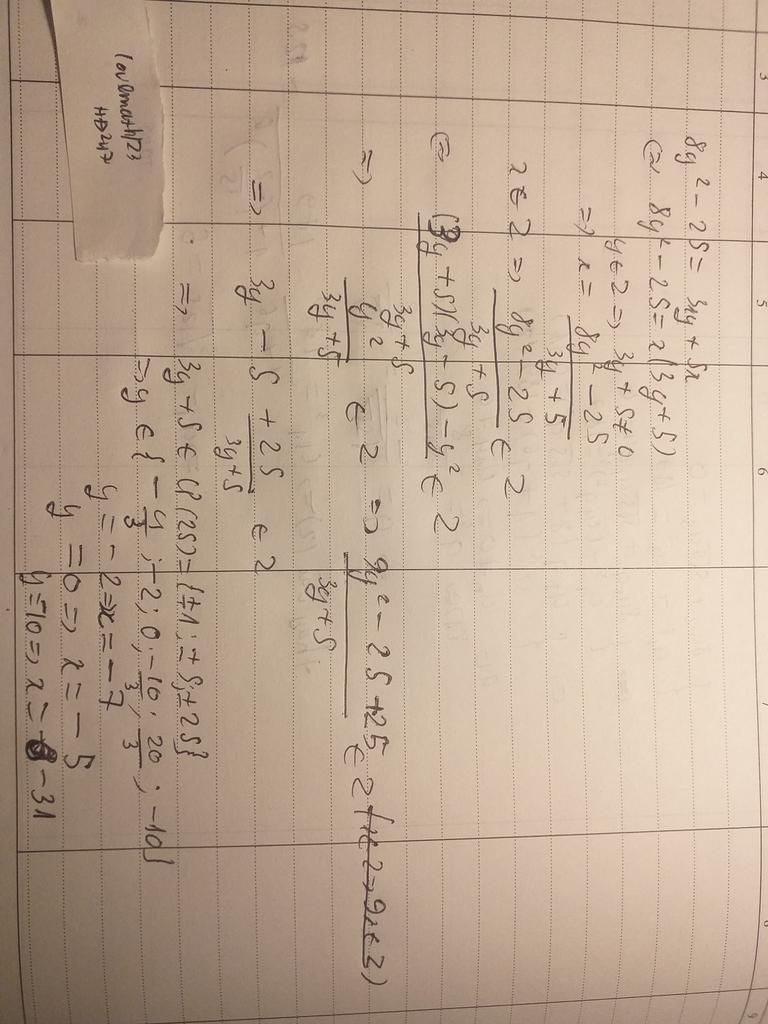 8y² - 25 = 3xy + 5x
(=) 8y² - 25 = x(3y + 5)
y ∈ Z => 3y + 5 ≠ 0
=> x = \frac{8y² - 25}{3y + 5}
x ∈ Z => \frac{8y² - 25}{3y + 5} ∈ Z
(=) \frac{(3y + 5)(3y - 5) - y²}{3y + 5} ∈ Z
=> \frac{y²}{3y + 5} ∈ Z => \frac{9y² - 25 + 25}{3y + 5} ∈ Z
=> 3y - 5 + \frac{25}{3y + 5} ∈ Z
=> 3y + 5 ∈ Ư(25) = {±1; ±5; ±25}
=> y ∈ {-\frac{4}{3}; -2; 0; -\frac{10}{3}; \frac{20}{3}; -10}
y = -2 => x = -7
y = 0 => x = -5
y = -10 => x = -31
3
4
5
6
7
8
9